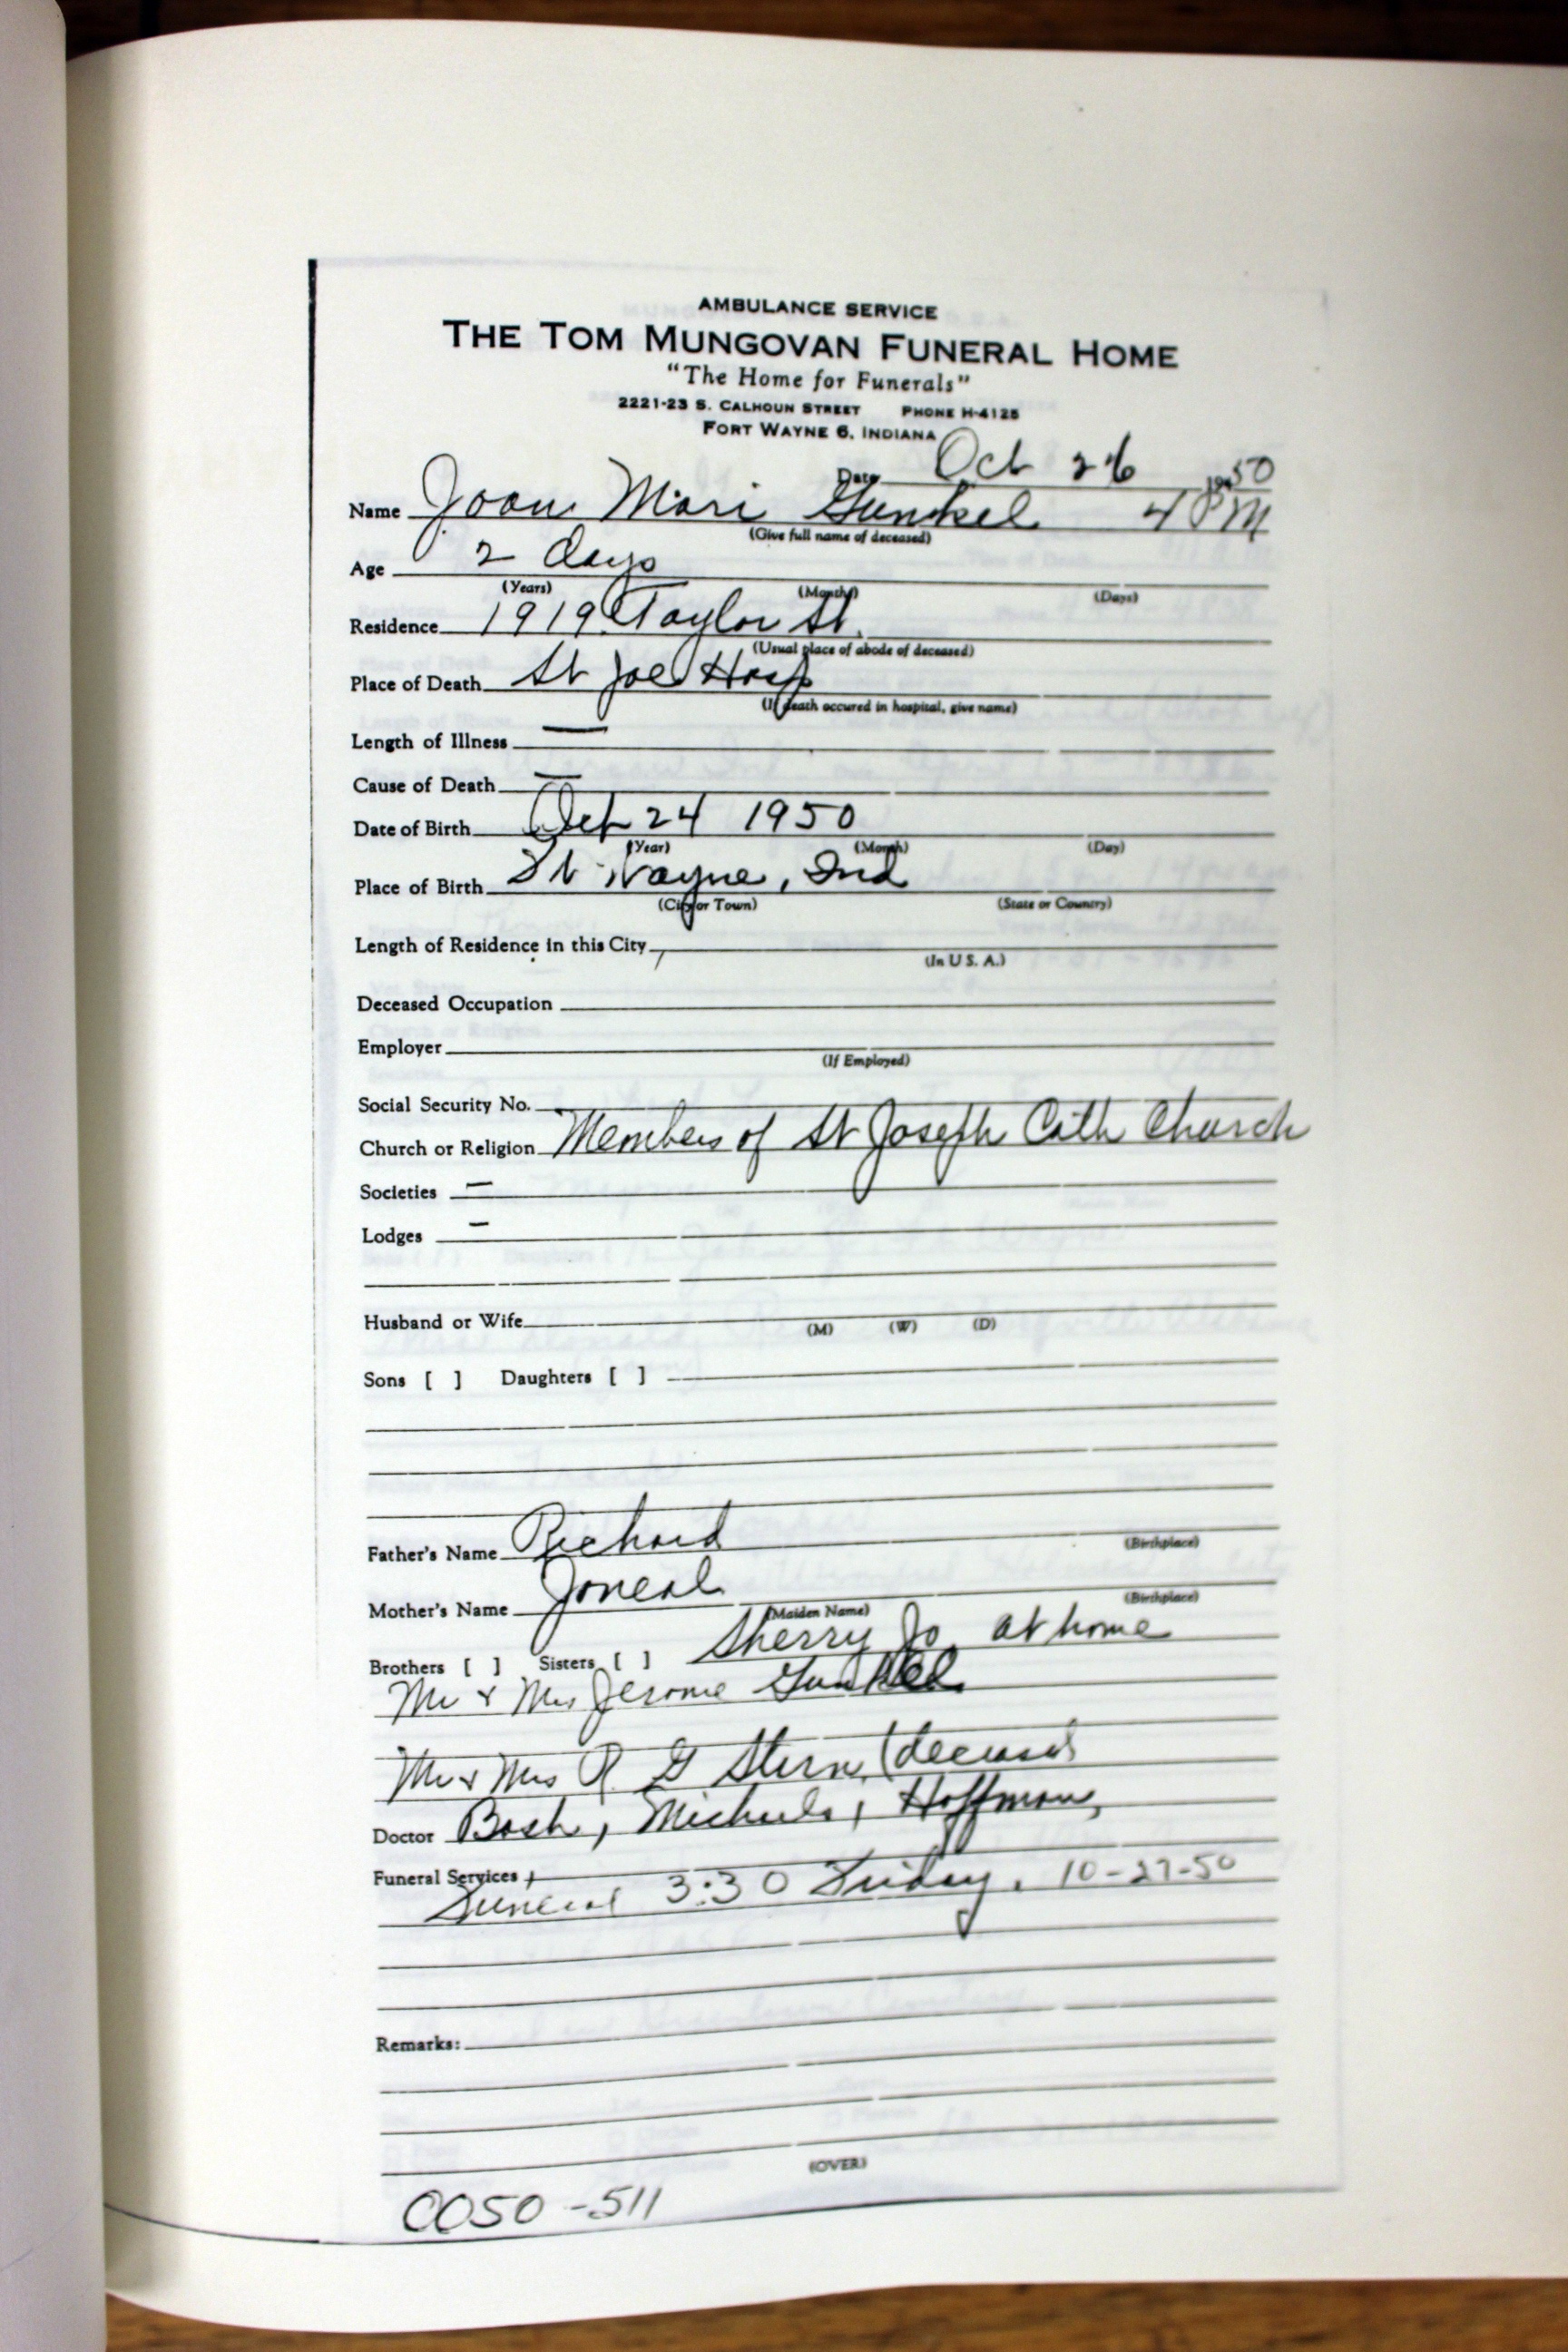 AMBULANCE SERVICE
THE TOM MUNGOVAN FUNERAL HOME
"The Home for Funerals"
2221-23 S. CALHOUN STREET PHONE H-4125
FORT WAYNE 6, INDIANA
Date Oct 26 1950
Name Joan Mari Gunkel 4 PM
(Give full name of deceased)
Age 2 days
(Years) (Months) (Days)
Residence 1919 Taylor St.
(Usual place of abode of deceased)
Place of Death St Joe Hosp
(If death occured in hospital, give name)
Length of Illness —
Cause of Death —
Date of Birth Oct 24 1950
(Year) (Month) (Day)
Place of Birth Ft Wayne, Ind
(City or Town) (State or Country)
Length of Residence in this City
(In U S. A.)
Deceased Occupation
Employer
(If Employed)
Social Security No.
Church or Religion Members of St Joseph Cath Church
Societies —
Lodges —
Husband or Wife
(M) (W) (D)
Sons [ ] Daughters [ ]
Father's Name Richard
(Birthplace)
Mother's Name Joneal
(Maiden Name) (Birthplace)
Brothers [ ] Sisters [ ] Sherry Jo at home
Mr & Mrs Jerome Gunkel
Mr & Mrs R G Stern (deceased
Doctor Bash, Michaels, Hoffman,
Funeral Services
Funeral 3:30 Friday, 10-27-50
Remarks:
(OVER)
0050-511